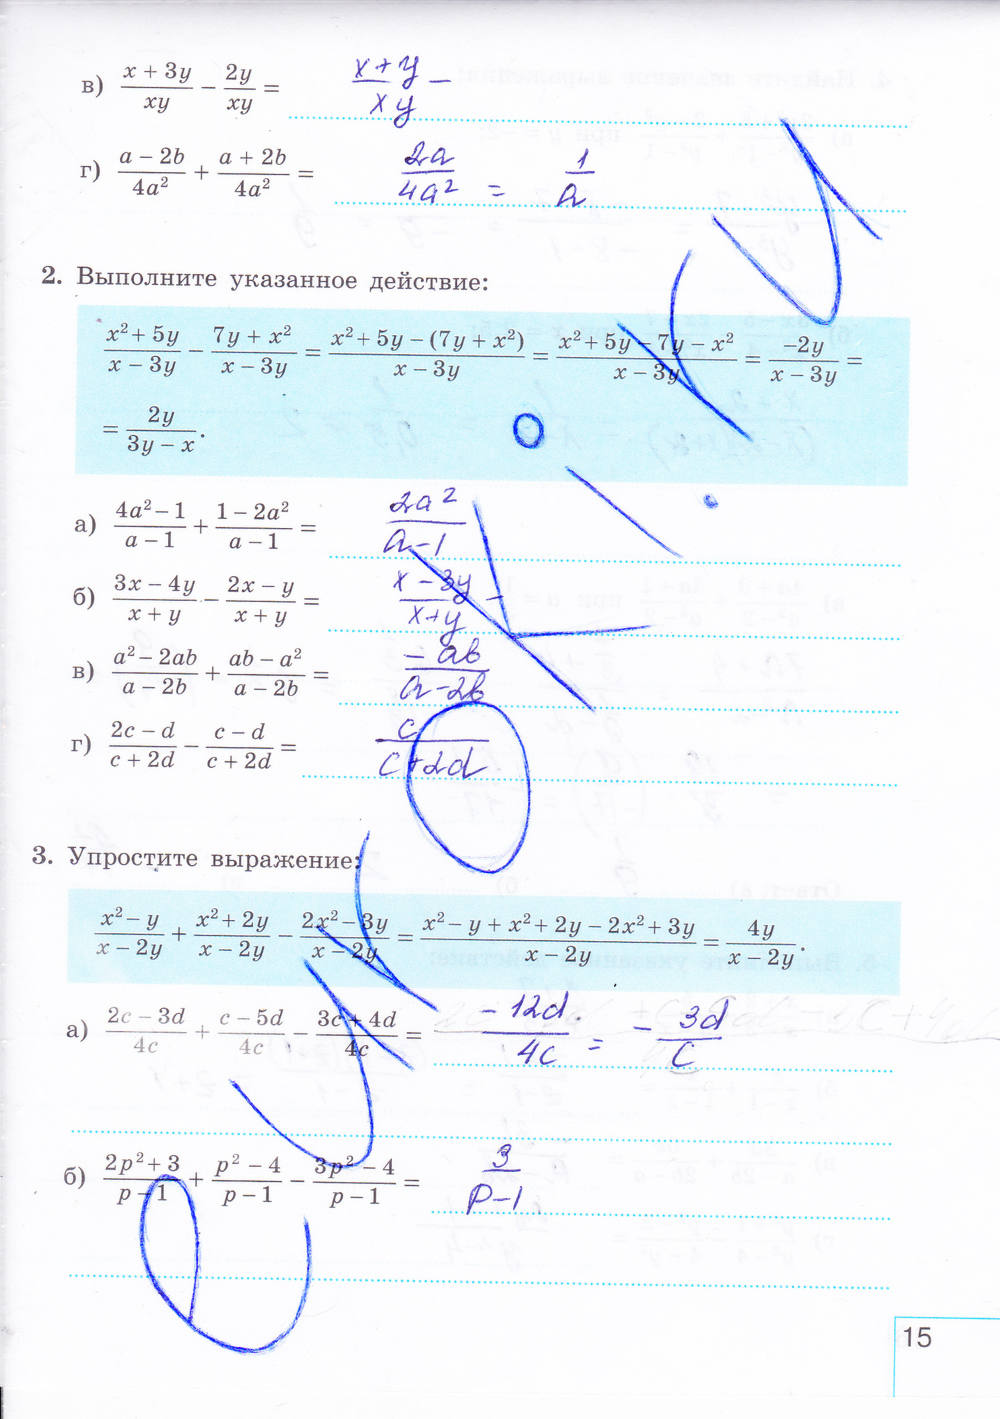 в) \frac{x + 3y}{xy} - \frac{2y}{xy} = \frac{x+y}{xy} -
г) \frac{a - 2b}{4a^2} + \frac{a + 2b}{4a^2} = \frac{2a}{4a^2} = \frac{1}{a}
2. Выполните указанное действие:
\frac{x^2 + 5y}{x - 3y} - \frac{7y + x^2}{x - 3y} = \frac{x^2 + 5y - (7y + x^2)}{x - 3y} = \frac{x^2 + 5y - 7y - x^2}{x - 3y} = \frac{-2y}{x - 3y} =
= \frac{2y}{3y - x}.
а) \frac{4a^2 - 1}{a - 1} + \frac{1 - 2a^2}{a - 1} = \frac{2a^2}{a-1}
б) \frac{3x - 4y}{x + y} - \frac{2x - y}{x + y} = \frac{x-3y}{x+y} -
в) \frac{a^2 - 2ab}{a - 2b} + \frac{ab - a^2}{a - 2b} = \frac{-ab}{a-2b}
г) \frac{2c - d}{c + 2d} - \frac{c - d}{c + 2d} = \frac{c}{c+2d}
3. Упростите выражение:
\frac{x^2 - y}{x - 2y} + \frac{x^2 + 2y}{x - 2y} - \frac{2x^2 - 3y}{x - 2y} = \frac{x^2 - y + x^2 + 2y - 2x^2 + 3y}{x - 2y} = \frac{4y}{x - 2y}.
а) \frac{2c - 3d}{4c} + \frac{c - 5d}{4c} - \frac{3c + 4d}{4c} = \frac{-12d}{4c} = - \frac{3d}{c}
б) \frac{2p^2 + 3}{p - 1} + \frac{p^2 - 4}{p - 1} - \frac{3p^2 - 4}{p - 1} = \frac{3}{p-1}
15